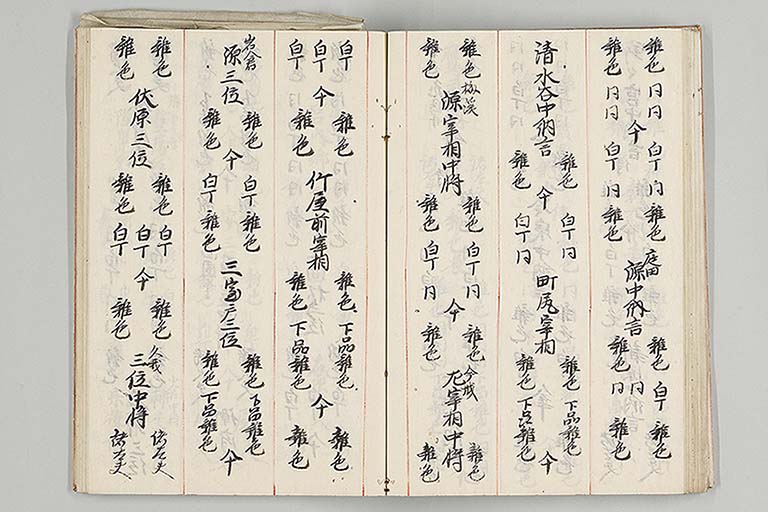 雑色 同同 白丁 同 雑色 庭田 雑色 白丁 雑色
仐 源中納言 同
雑色 同同 白丁 同 雑色 雑色 同 雑色
雑色 白丁 同 雑色 下品 雑色
清水谷中納言 仐 町尻宰相 仐
雑色 白丁 同 雑色 下品 雑色
雑色 梅渓 雑色 白丁 同 雑色 今城 雑色
源宰相中将 仐 宰相中将
雑色 雑色 白丁 同 雑色 雑色
白丁 雑色 雑色 下品 雑色 雑色
白丁 仐 竹屋前宰相 仐
白丁 雑色 雑色 下品 雑色 雑色
岩倉 雑色 白丁 雑色 雑色 下品 雑色
源三位 仐 三室戸三位 仐
雑色 白丁 雑色 雑色 下品 雑色
雑色 雑色 白丁 雑色 久我
伏原三位 白丁 仐 三位中将
雑色 雑色 白丁 雑色